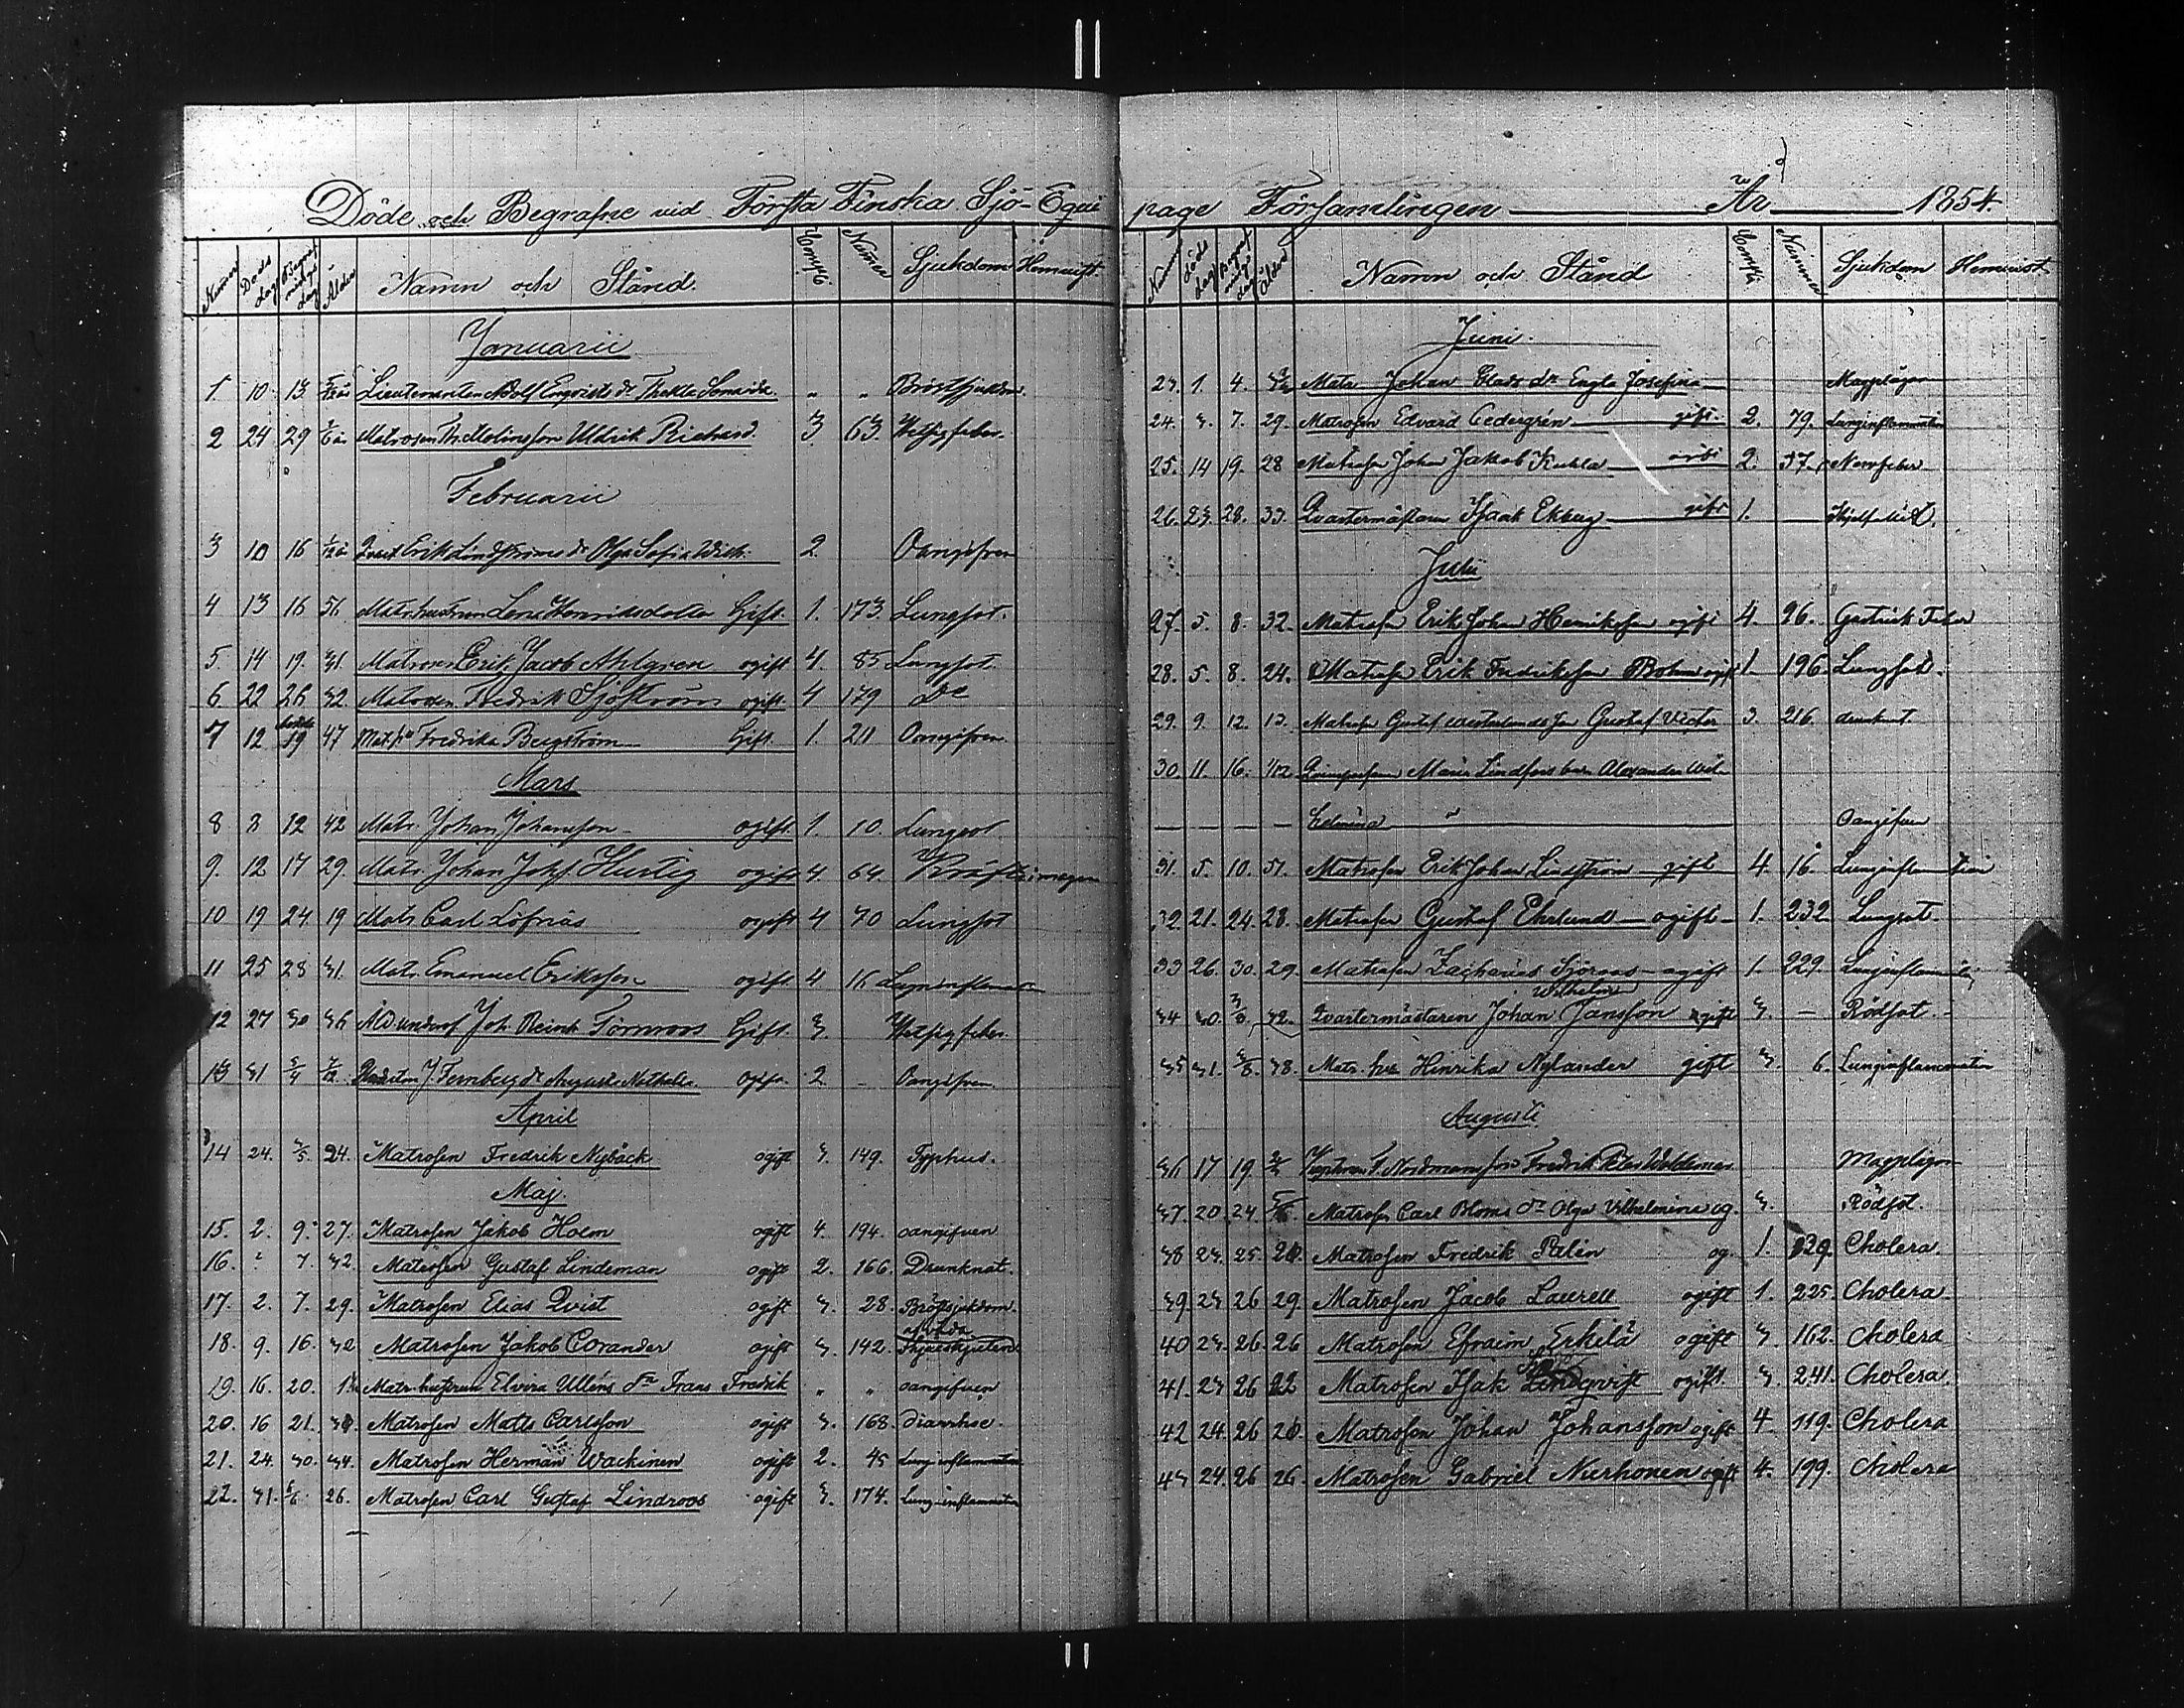 Döde och Begrafne vid Första Finska Sjö-Equi
Numer Döds dag Begraf nings dag Ålder Namn och Stånd. Comp. Numer Sjukdom Hemvist
Januarii
1 10 13 Lieutenanten Adolf Engvists dr Thekla " " Bröstsjukdom.
2 24 29 Matrosen Molins son Uldrik Richard 3 63 Hetsig feber.
Februarii
3 10 16 Erik Lindströms dr Olga Sofia Wilh. 2 Oangifven
4 13 16 51. Matr. hustrun Lena Henriksdotter Gift. 1. 173 Lungsot.
5 14 19. 31 Matrosen Erik Jacob Ahlgren ogift 4 85 Lungsot
6 22 26 32. Matrosen Fredrik Sjöström ogift 4 179 Do
7 12 19 47 Fredrika Bergström Gift. 1. 211 Oangifven.
Mars
8 8 12 42 Matr. Johan Johansson ogift 1. 10. Lungsot
9. 12 17 29. Matr. Johan Hurtig ogift 4. 64. Kräft i magen
10 19 24 19 Matr Carl Löfnäs ogift 4 70 Lungsot
11 25 28 31. Matr. Emanuel Eriksson ogift 4 16 Lunginflammation
12 27 30 36 Joh. Reinh Törnroos Gift. 3. Hetsig feber
13 31 5/4 7/12 J Fernberg dr Augusta Nathalia Ogift. 2 - Oangifven
April
14 24. 3/5. 24. Matrosen Fredrik Nybäck ogift 3. 149. Typhus.
Maj.
15. 2. 9. 27. Matrosen Jakob Holm ogift 4. 194. oangifven
16. 7. 32. Matrosen Gustaf Lindeman ogift 2. 166. Drunknat.
17. 2. 7. 29. Matrosen Elias Qvist ogift 3. 28. Bröstsjukdom
18. 9. 16. 32 Matrosen Jakob Corander ogift 3. 142.
19. 16. 20. Matr. hustrun Elvira Ulléns Frans Fredrik " " oangifven
20. 16 21. Matrosen Matts Carlsson ogift 3. 168. diarrhae.
21. 24. 30. 34. Matrosen Herman Wackinen ogift 2. 45 Lunginflammation
22. 31. 26. Matrosen Carl Gustaf Lindroos ogift 3. 174. Lunginflammation
page Församlingen År 1854.
Numer döds dag Begraf nings dag Ålder Namn och Stånd Comp. Nummer Sjukdom Hemvist
Juni.
23. 1. 4. Matr. Johan Glads dr Engla Josefina Magplågor
24. 3. 7. 29. Matrosen Edvard Cedergrén gift. 2. 79. Lunginflammation
25. 14 19. 28 Matrosen Johan Jakob Kuhla 2. 37. Nervfeber
26. 23. 28. 33. Qvartermästaren Isaak Ekberg gift 1. —
Julii
27. 5. 8. 32. Matrosen Erik Johan Henriksson ogift 4. 26. Gastrisk Feber
28. 5. 8. 24. Matrosen Erik Fredriksson Bohm ogift 1. 196. Lungsot.
29. 9. 12. 13. Matrosen Gustaf son Gustaf Victor 3. 216. drunknat
30. 11. 16. 1/12 Maria Lindfors barn Alexandra Wil-
helmina Oangifven
31. 5. 10. 51. Matrosen Erik Johan Lindström gift 4. 16. Lunginflammation
32. 21. 24. 28. Matrosen Gustaf Ehrlund ogift 1. 232 Lungsot
33 26. 30. 29. Matrosen Zacharias Sjöroos ogift 1. 229. Lunginflammation
Wilhelm
34 30. 32. Qvartermästaren Johan Jansson ogift 3. — Rödsot.
35 31. 38. Matr. hu Hinrika Nylander gift 3. 6. Lunginflammation
Augusti
36 17 19. Kaptenen F. Nordmans son Fredrik Woldemar Magplågor
37. 20. 24. Matrosen Carl Bloms dr Olga Vilhelmina og. 3. Rödsot.
38 23. 25. Matrosen Fredrik Palén og. 1. 129. Cholera
39 23 26 29. Matrosen Jacob Laurell ogift 1. 225. Cholera
40 23. 26. 26 Matrosen Efraim Erkilä ogift 3. 162. Cholera
41. 23 26 22 Matrosen Isak ogift. 3. 241. Cholera.
42 24. 26 Matrosen Johan Johansson ogift 4. 119. Cholera
43 24. 26 26. Matrosen Gabriel Nurhonen ogift 4. 199. Cholera